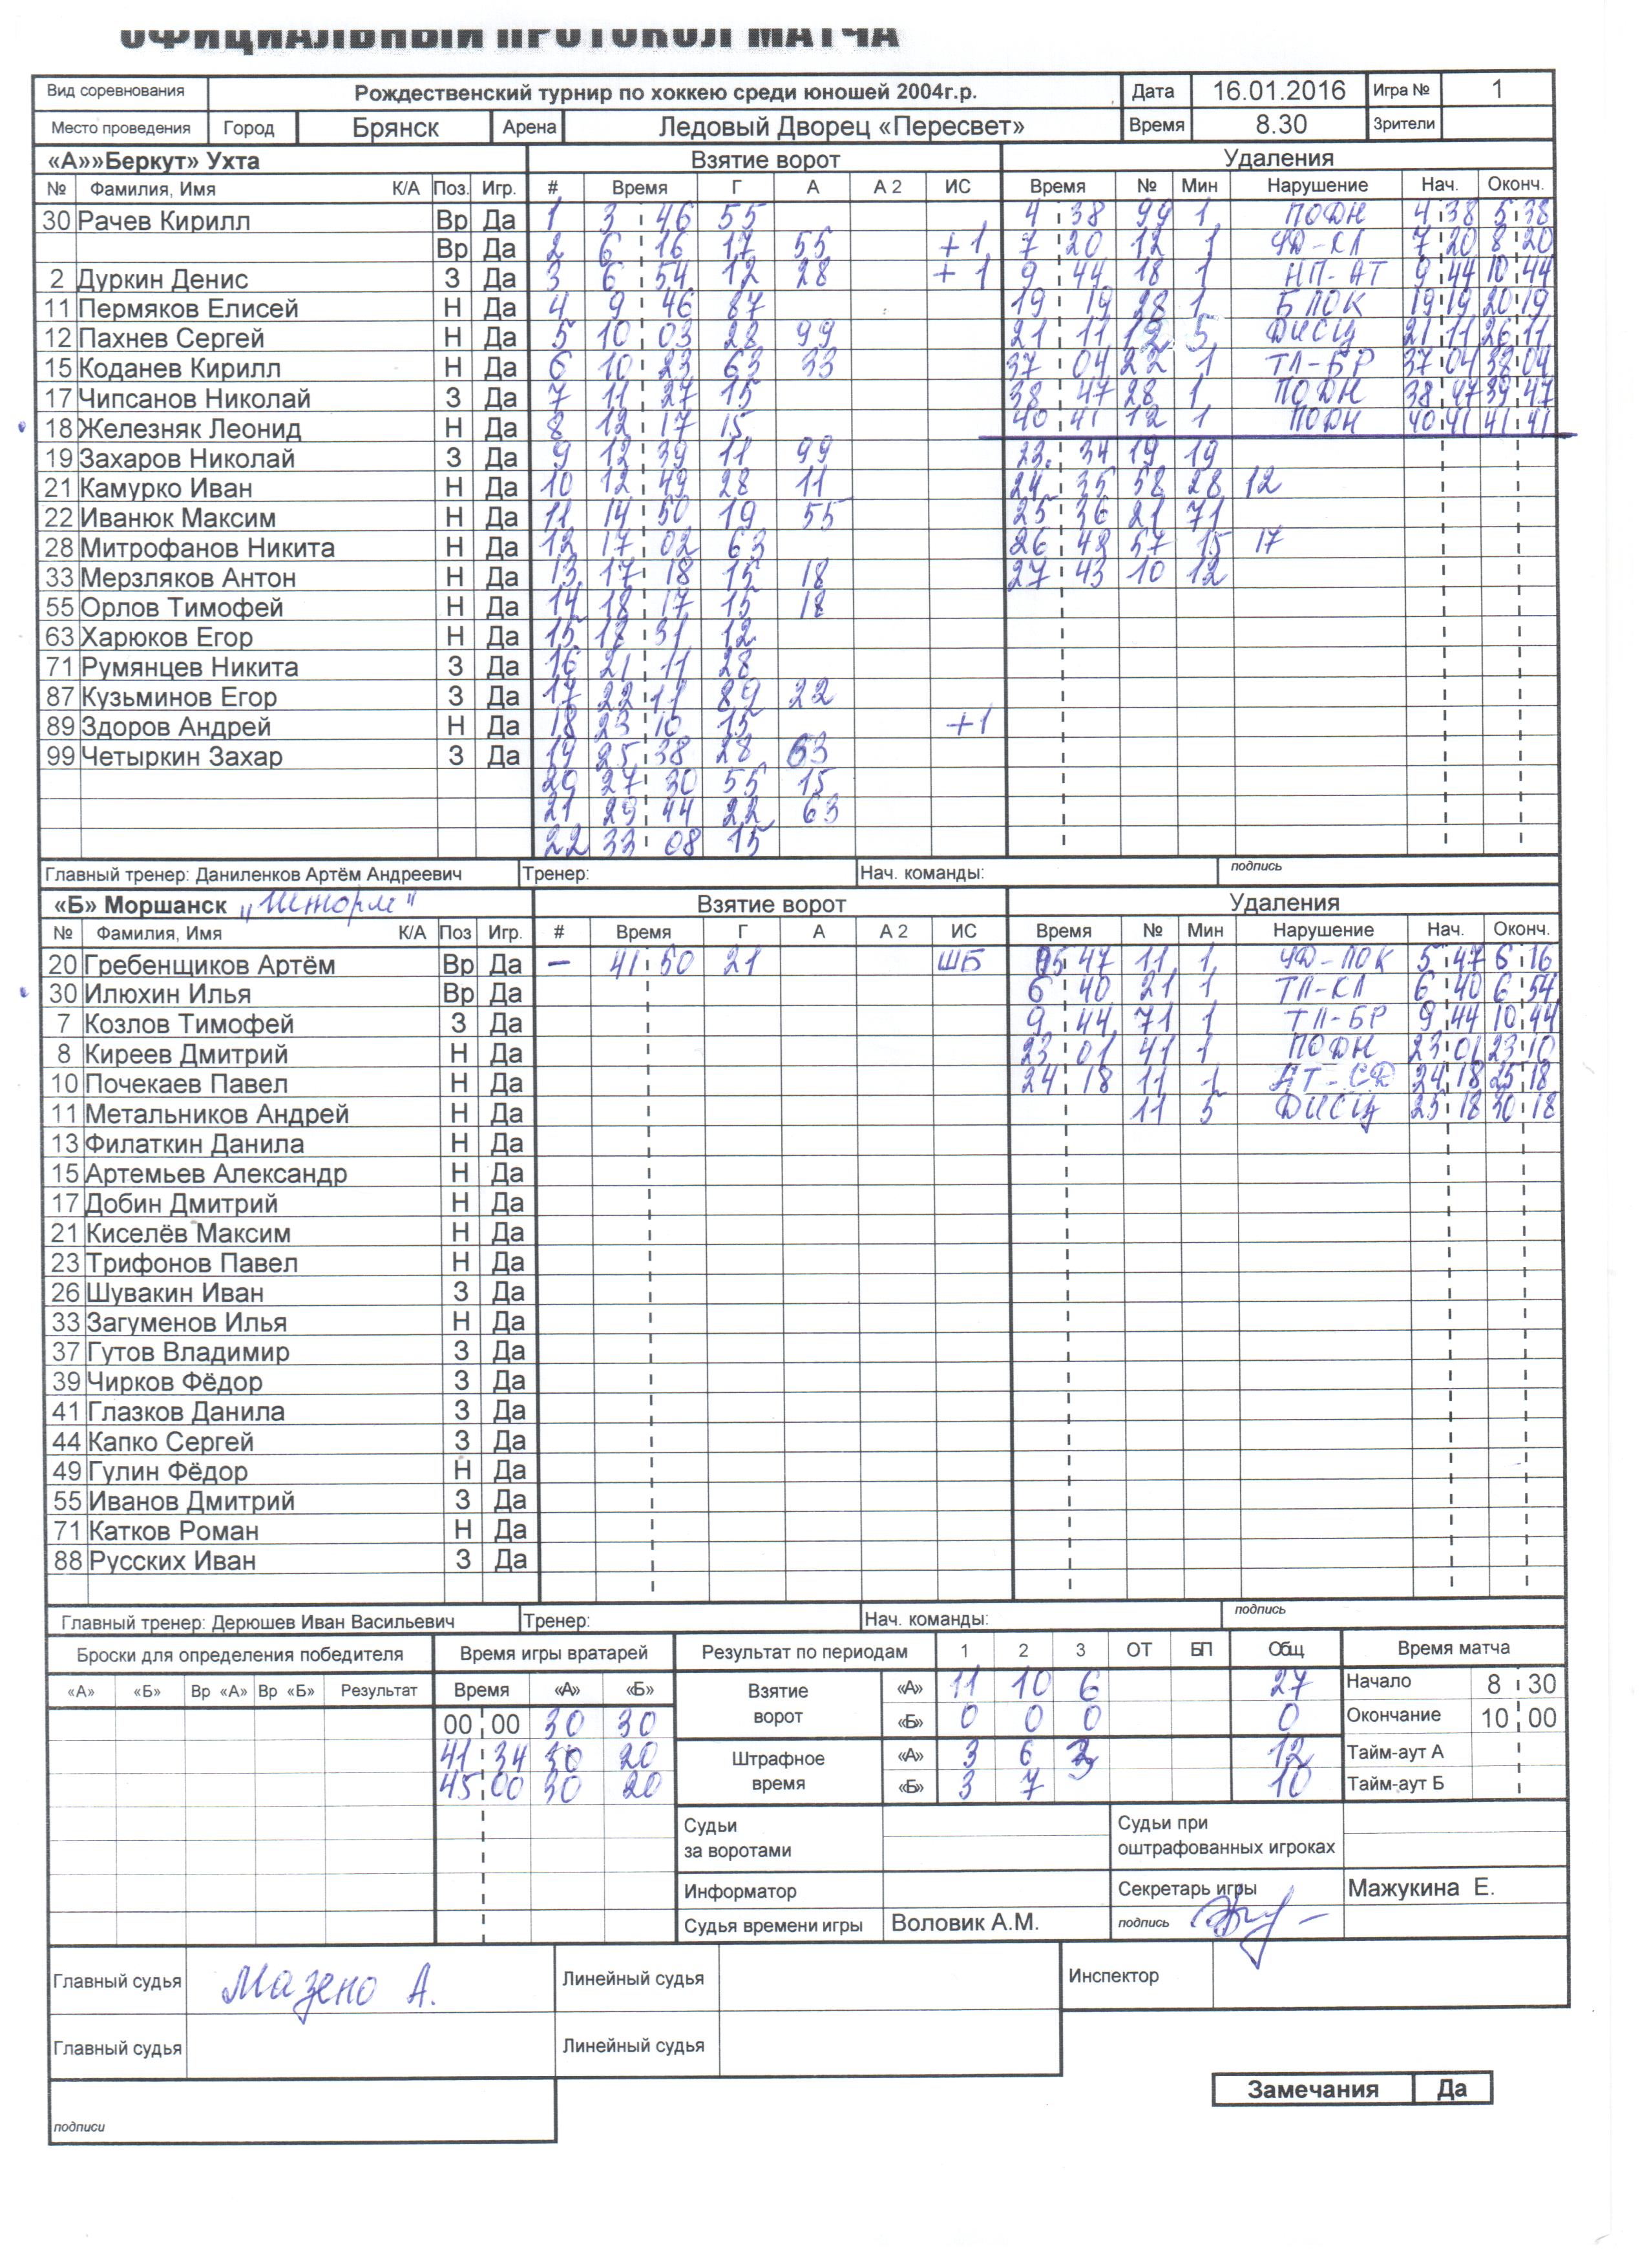 ОФИЦИАЛЬНЫЙ ПРОТОКОЛ МАТЧА
Вид соревнования Рождественский турнир по хоккею среди юношей 2004г.р. Дата 16.01.2016 Игра № 1
Место проведения Город Брянск Арена Ледовый Дворец «Пересвет» Время 8.30 Зрители
«А»»Беркут» Ухта Взятие ворот Удаления
№ Фамилия, Имя К/А Поз. Игр. # Время Г А А 2 ИС Время № Мин Нарушение Нач. Оконч.
30 Рачев Кирилл Вр Да 1 3 46 55 4 38 99 1 ПОДН 4 38 5 38
Вр Да 2 6 16 17 55 +1 7 20 12 1 УД-КЛ 7 20 8 20
2 Дуркин Денис З Да 3 6 54 12 28 +1 9 44 18 1 НП-АТ 9 44 10 44
11 Пермяков Елисей Н Да 4 9 46 87 19 19 28 1 БЛОК 19 19 20 19
12 Пахнев Сергей Н Да 5 10 03 28 99 21 11 12 5 ДИСЦ 21 11 26 11
15 Коданев Кирилл Н Да 6 10 23 63 33 37 04 22 1 ТЛ-БР 37 04 38 04
17 Чипсанов Николай З Да 7 11 27 15 38 47 28 1 ПОДН 38 47 39 47
18 Железняк Леонид Н Да 8 12 17 15 40 41 12 1 ПОДН 40 41 41 41
19 Захаров Николай З Да 9 12 39 11 99 23. 34 19 19
21 Камурко Иван Н Да 10 12 49 28 11 24 35 58 28 12
22 Иванюк Максим Н Да 11 14 50 19 55 25 36 21 71
28 Митрофанов Никита Н Да 12 17 02 63 26 42 57 15 17
33 Мерзляков Антон Н Да 13 17 18 15 18 27 43 10 12
55 Орлов Тимофей Н Да 14 18 17 15 18
63 Харюков Егор Н Да 15 31 12
71 Румянцев Никита З Да 16 21 11 28
87 Кузьминов Егор З Да 17 22 11 89 22
89 Здоров Андрей Н Да 18 23 10 15 +1
99 Четыркин Захар З Да 19 25 38 28 63
20 27 30 55 15
21 29 44 22 63
22 33 08 15
Главный тренер: Даниленков Артём Андреевич Тренер: Нач. команды: подпись
«Б» Моршанск "Шторм" Взятие ворот Удаления
№ Фамилия, Имя К/А Поз Игр. # Время Г А А 2 ИС Время № Мин Нарушение Нач. Оконч.
20 Гребенщиков Артём Вр Да - 41 50 21 ШБ 05 47 11 1 УД-ЛОК 5 47 6 16
30 Илюхин Илья Вр Да 6 40 21 1 ТЛ-КЛ 6 40 6 54
7 Козлов Тимофей З Да 9 44 71 1 ТЛ-БР 9 44 10 44
8 Киреев Дмитрий Н Да 23 01 41 1 ПОДН 23 01 23 10
10 Почекаев Павел Н Да 24 18 11 1 АТ-СД 24 18 25 18
11 Метальников Андрей Н Да 11 5 ДИСЦ 25 18 30 18
13 Филаткин Данила Н Да
15 Артемьев Александр Н Да
17 Добин Дмитрий Н Да
21 Киселёв Максим Н Да
23 Трифонов Павел Н Да
26 Шувакин Иван З Да
33 Загуменов Илья Н Да
37 Гутов Владимир З Да
39 Чирков Фёдор З Да
41 Глазков Данила З Да
44 Капко Сергей З Да
49 Гулин Фёдор Н Да
55 Иванов Дмитрий З Да
71 Катков Роман Н Да
88 Русских Иван З Да
Главный тренер: Дерюшев Иван Васильевич Тренер: Нач. команды: подпись
Броски для определения победителя Время игры вратарей Результат по периодам 1 2 3 ОТ БП Общ Время матча
«А» «Б» Вр «А» Вр «Б» Результат Время «А» «Б» Взятие ворот «А» 11 10 6 27 Начало 8 30
00 00 30 30 «Б» 0 0 0 0 Окончание 10 00
41 34 30 20 Штрафное время «А» 3 6 3 12 Тайм-аут А
45 00 30 20 «Б» 3 7 10 Тайм-аут Б
Судьи за воротами Судьи при оштрафованных игроках
Информатор Секретарь игры Мажукина Е.
Судья времени игры Воловик А.М. подпись
Главный судья Мазено А. Линейный судья Инспектор
Главный судья Линейный судья
Замечания Да
подписи